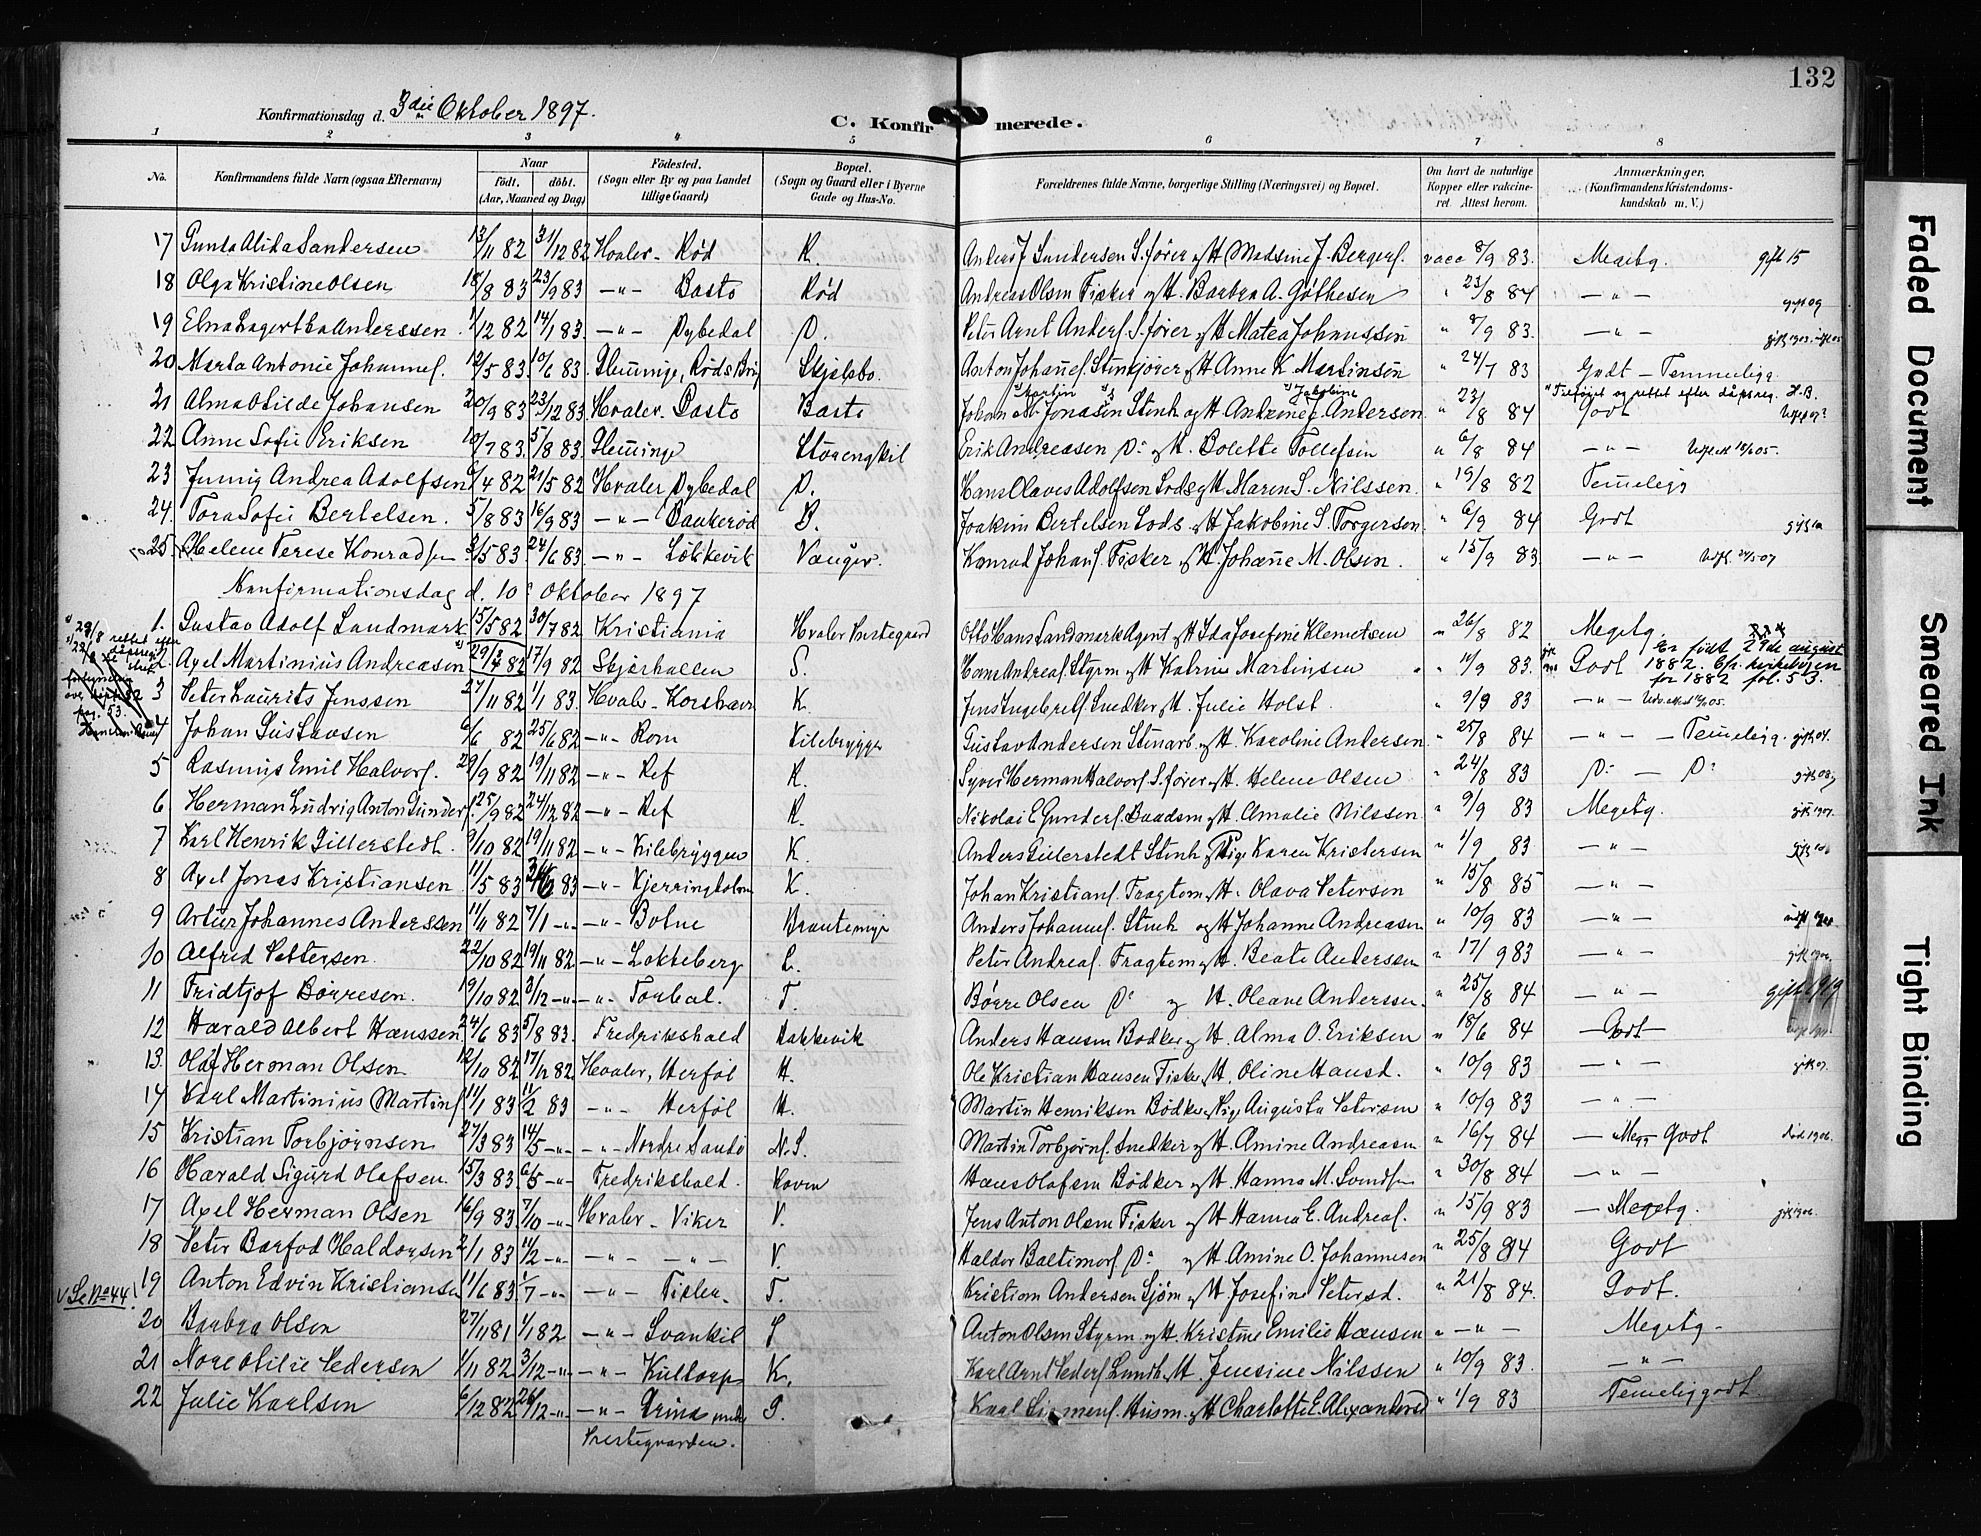 132
Konfirmationsdag d. 3die Oktober 1897.
C. Konfirmerede.
1 2 3 4 5 6 7 8
No. Konfirmandens fulde Navn (ogsaa Efternavn) Naar født. døbt. (Aar, Maaned og Dag) Födested. (Sogn eller By og paa Landet tillige Gaard) Bopæl. (Sogn og Gaard eller i Byerne Gade og Hus-No. Forældrenes fulde Navne, borgerlige Stilling (Næringsvei) og Bopæl. Om havt de naturlige Kopper eller vakcineret. Attest herom. Anmærkninger. (Konfirmandens Kristendomskundskab m. V.)
17 Gunda Alida Sandersen 13/11 82 31/12 82 Hvaler - Rød R. Anders J Sandersen S.fører og H Madsine J. Bergers. vacc 8/9 83. Megetg. gift 15
18 Olga Kristine Olsen 18/8 83 23/9 83 —"— Basto Rød Andreas Olsen Fisker og H. Barbra A. Gøthesen " 23/8 84 —"— gift 09
19 Elna Lagertha Anderssen 1/12 82 14/1 83. —"— Dybedal D. Peter Arnt Anders. S.fører og H Matea Johannssen " 8/9 83. —"—
20 Marta Antonie Johannes. 12/5 83. 10/6 83. Glemminge, Røds Brug Skjelsbo. Anton Johannes. Stenkjører og H Anne K. Martinsen " 24/7 83 Godt — Temmeligg.
21 Alma Otilde Johansen 20/9 83 23/12 83. Hvaler - Basto Basto Johan Martin Jonasen Stenh og H Andrine Jakobine Andersen. " 23/8 84 Godt
"Tilføiet og rettet efter dåpsreg. H.B.
22 Anne Sofie Eriksen 10/7 83. 5/8 83. Glemminge Storengkil Erik Andreasen Do og H. Bolette Tollefsen " 6/8 84 —"—
23 Jenny Andrea Adolfsen 6/4 82 21/5 82 Hvaler Dybedal D. Hans Olaves Adolfsen Lods og H Maren S. Nilssen. " 19/8 82 Temmeligg
24. Tora Sofie Bertelsen. 5/8 83 16/9 83 —"— Bankerød B. Joakim Bertelsen Lods og H Jakobine S. Torgersen. " 6/9 84 Godt
25. Helene Terese Konradsen 3/5 83. 24/6 83. —"— Løkkevik Vauger. Konrad Johans. Fisker og H. Johanne M. Olsen. " 15/9 83. —"— 24/5 07
Konfirmationsdag d. 10de Oktober 1897
1. Gustav Adolf Landmark 15/5 82 30/7 82 Kristiania Hvaler Prestegaard Otto Hans Landmark Agent og H Ida Josefine Klemetsen " 26/8 82 Megetg.
2. Axel Martinius Andreasen 29/ 82 17/9 82 Skjærhallen S. Hans Andreas. Styrm og H Katrine Martinsen " 11/9 83. Godt
Er født 29de august 1882. Efr. kirkebogen for 1882 fol. 53.
29/8 rettet efter dåpsreg.
pag. 53.
3 Peter Laurits Jenssen 27/11 82 1/1 83. Hvaler - Korshavn K. Jens Ingebrets. Snedker og H. Julie Holst. " 9/9 83 —"—
4 Johan Gustavsen 6/6 82 25/6 82 —"— Rom Kilebrygga Gustav Andersen Stenarb og H. Karoline Andersen " 25/8 84 —"— — Temmeligg.
5 Rasmus Emil Halvors. 29/9 82 19/11 82 —"— Ref R. Syver Herman Halvors. S.fører og H. Helene Olsen " 24/8 83 Do — Do gift 08
6. Herman Ludvig Anton Gunders. 25/9 82 24/12 82 —"— Ref R. Nikolai E Gunders. Baadsm og H. Amalie Nilssen " 9/9 83 Megetg. gift 1907.
7 Karl Henrik Gillerstedt. 9/10 82 19/11 82 —"— Kilebryggen K. Anders Gillerstedt Stenh og Pige Karen Kristersen " 1/9 83 —"—
8 Axel Jonas Kristiansen 11/5 83 24/6 83 —"— Kjerringholmen K. Johan Kristians. Fragtem og H. Olava Petersen " 15/8 85 —"—
9 Artur Johannes Anderssen 11/11 82 7/1 -"- —"— Botne Brautemyr Anders Johannes. Stenh og H Johanne Andreasen " 10/9 83 —"—
10 Alfred Pettersen. 22/10 82 19/11 82 —"— Lokkeberg L. Peter Andreas. Fragtem og H. Beate Anderssen " 17/9 83 —"—
11 Fridtjof Børresen. 19/10 82 3/12 -"- —"— Torbal. T. Børre Olsen Do og H. Oleane Anderssen. " 25/8 84 —"— gift 1919
12 Harald Albert Hanssen 24/6 83 5/8 83. Fredrikshald Bakkevik Anders Hansen Bødker og H. Alma O. Eriksen " 18/6 84 — Godt
13. Olaf Herman Olsen 12/10 82 17/12 82 Hvaler, Herføl H. Ole Kristian Hansen Fisker og H. Oline Hansd. " 10/9 83 —"—
14 Karl Martinius Martins. 11/1 83 11/2 83 —"— Herføl H. Martin Henriksen Bødker Pige Augusta Petersen " 10/9 83 —"—
15 Kristian Torbjørnsen 27/3 83 14/5 -"- —"— Nordre Sandø N.S. Martin Torbjørns. Snedker og H. Amine Andreasen " 16/7 84 — Meget Godt død 1906.
16 Harald Sigurd Olafsen 15/3 83 6/5 -"- Fredrikshald. Koven Hans Olafsen Bødker og H. Hanna M. Svendsen " 30/8 84 —"—
17 Axel Herman Olsen 16/9 83 7/10 -"- Hvaler - Viker V. Jens Anton Olsen Fisker og H Hanna E. Andreas. " 15/9 83 — Megetg.
18 Peter Barfod Haldorsen 2/1 83 11/2 -"- —"— V. Haldor Baltimors. Do og H. Amine O. Johannesen " 25/8 84 Godt
19 Anton Edvin Kristiansen 11/6 83 1/7 -"- —"— Tisler. T. Kristian Andersen Sjøm og H Josefine Petersd. " 21/8 84. Godt.
V Se No 44!
20 Barbra Olsen 27/11 81 1/1 82 —"— Svankil S Anton Olsen Styrm og H. Kristine Emilie Hansen " —"— Megetg.
21 Nore Otilie Pedersen 1/11 82 3/12 -"- —"— Kiltorp K. Karl Arnt Peders. Lundh. H. Jensine Nilssen " 10/9 83. —"—
22 Julie Karlsen 6/12 82 26/12 -"- —"— Grina under Prestegaarden. G. Karl Simens. Husm. og H Charlotte E. Alexandersd " 1/9 83 Temmelig godt.
Faded Document
Smeared Ink
Tight Binding